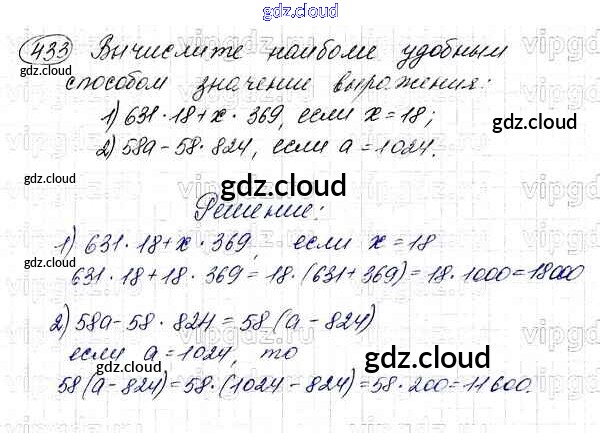 gdz.cloud
433 Вычислите наиболее удобным
gdz.cloud
способом значение выражения:
1) 631·18+x·369, если x=18;
gdz.cloud
2) 58a-58·824, если a=1024.
gdz.cloud
gdz.cloud
Решение:
1) 631·18+x·369, если x=18
gdz.cloud
631·18+18·369=18·(631+369)=18·1000=18000
2) 58a-58·824=58(a-824)
gdz.cloud
если a=1024, то
gdz.cloud
58(a-824)=58·(1024-824)=58·200=11600.
gdz.cloud
gdz.cloud